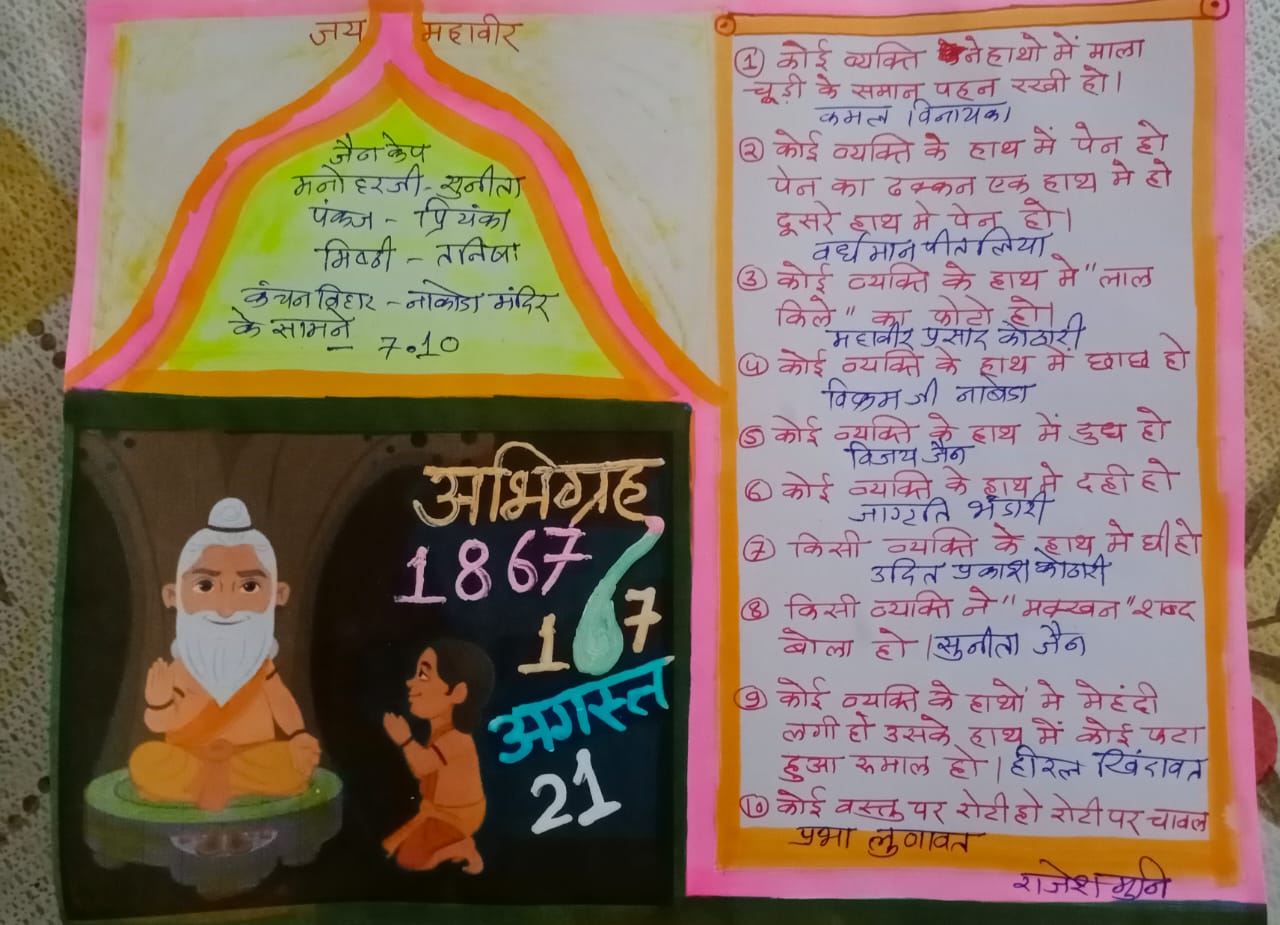 जय महावीर
जैन केप
मनोहरजी - सुनीता
पंकज - प्रियंका
मिष्ठी - तनिषा
कंचन विहार - नाकोडा मंदिर
के सामने - 7.10
अभिग्रह
1867
167
अगस्त
21
① कोई व्यक्ति ने हाथो में माला
चूड़ी के समान पहन रखी हो।
कमल विनायका
② कोई व्यक्ति के हाथ में पेन हो
पेन का ढक्कन एक हाथ मे हो
दूसरे हाथ मे पेन हो।
वर्धमान पीतलिया
③ कोई व्यक्ति के हाथ मे "लाल
किले" का फोटो हो।
महावीर प्रसाद कोठारी
④ कोई व्यक्ति के हाथ में छाछ हो
विक्रम जी नाबेडा
⑤ कोई व्यक्ति के हाथ में दुध हो
विजय जैन
⑥ कोई व्यक्ति के हाथ मे दही हो
जागृति भंडारी
⑦ किसी व्यक्ति के हाथ मे घी हो
उदित प्रकाश कोठारी
⑧ किसी व्यक्ति ने "मक्खन" शब्द
बोला हो। सुनीता जैन
⑨ कोई व्यक्ति के हाथो मे मेहंदी
लगी हो उसके हाथ में कोई फटा
हुआ रुमाल हो। हीरल खिंदावत
⑩ कोई वस्तु पर रोटी हो रोटी पर चावल
प्रभा लुणावत
राजेश मुनि